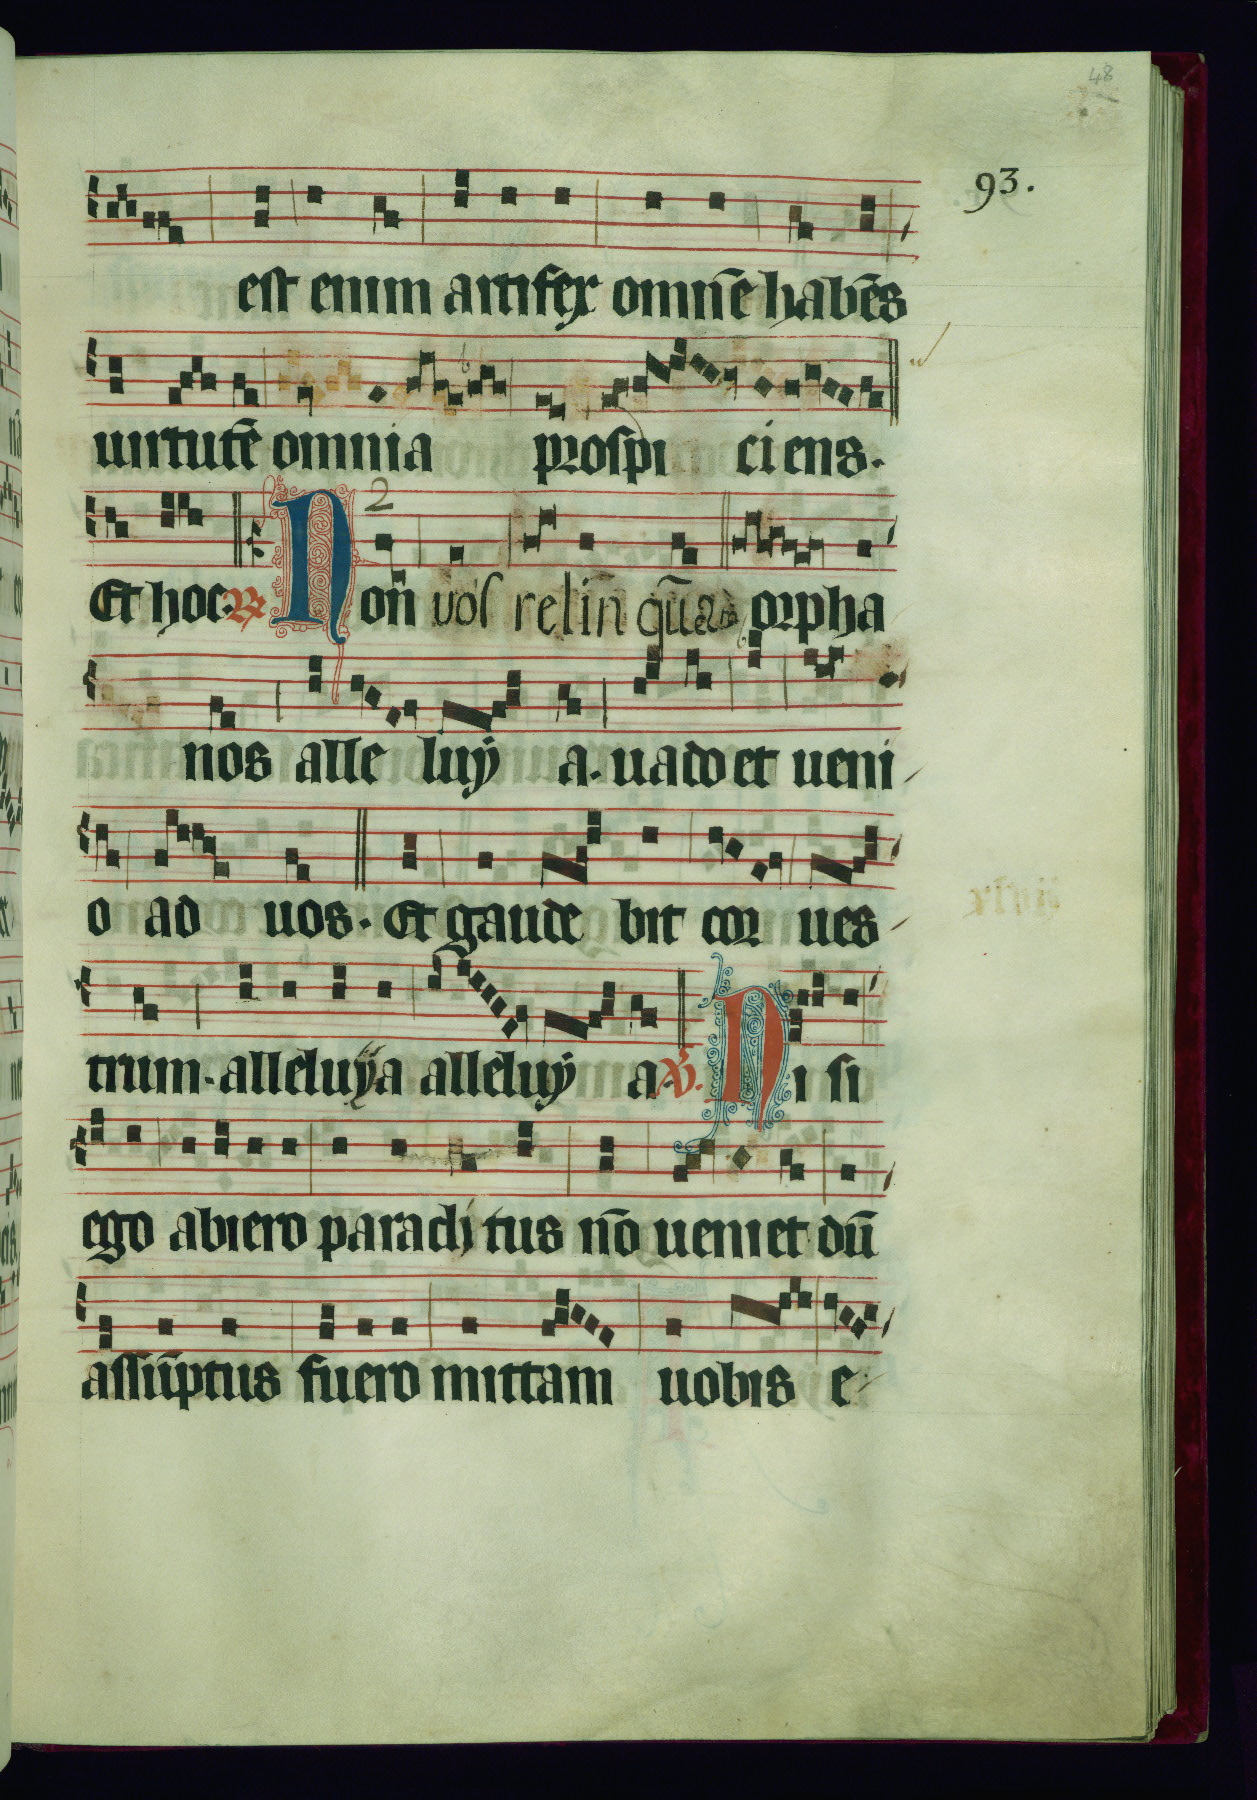 48
93.
est enim artifex omnē habēs
uirtutē omnia prospi ciens.
2
Et hoc. ℟ Non vos relin orpha
nos alle luy a. uado et ueni
o ad uos. Et gaude bit cor ues
trum. alleluya alleluy a. ℣. Ni si
ego abiero paracli tus nō ueniet dū
assūptus fuero mittam uobis e